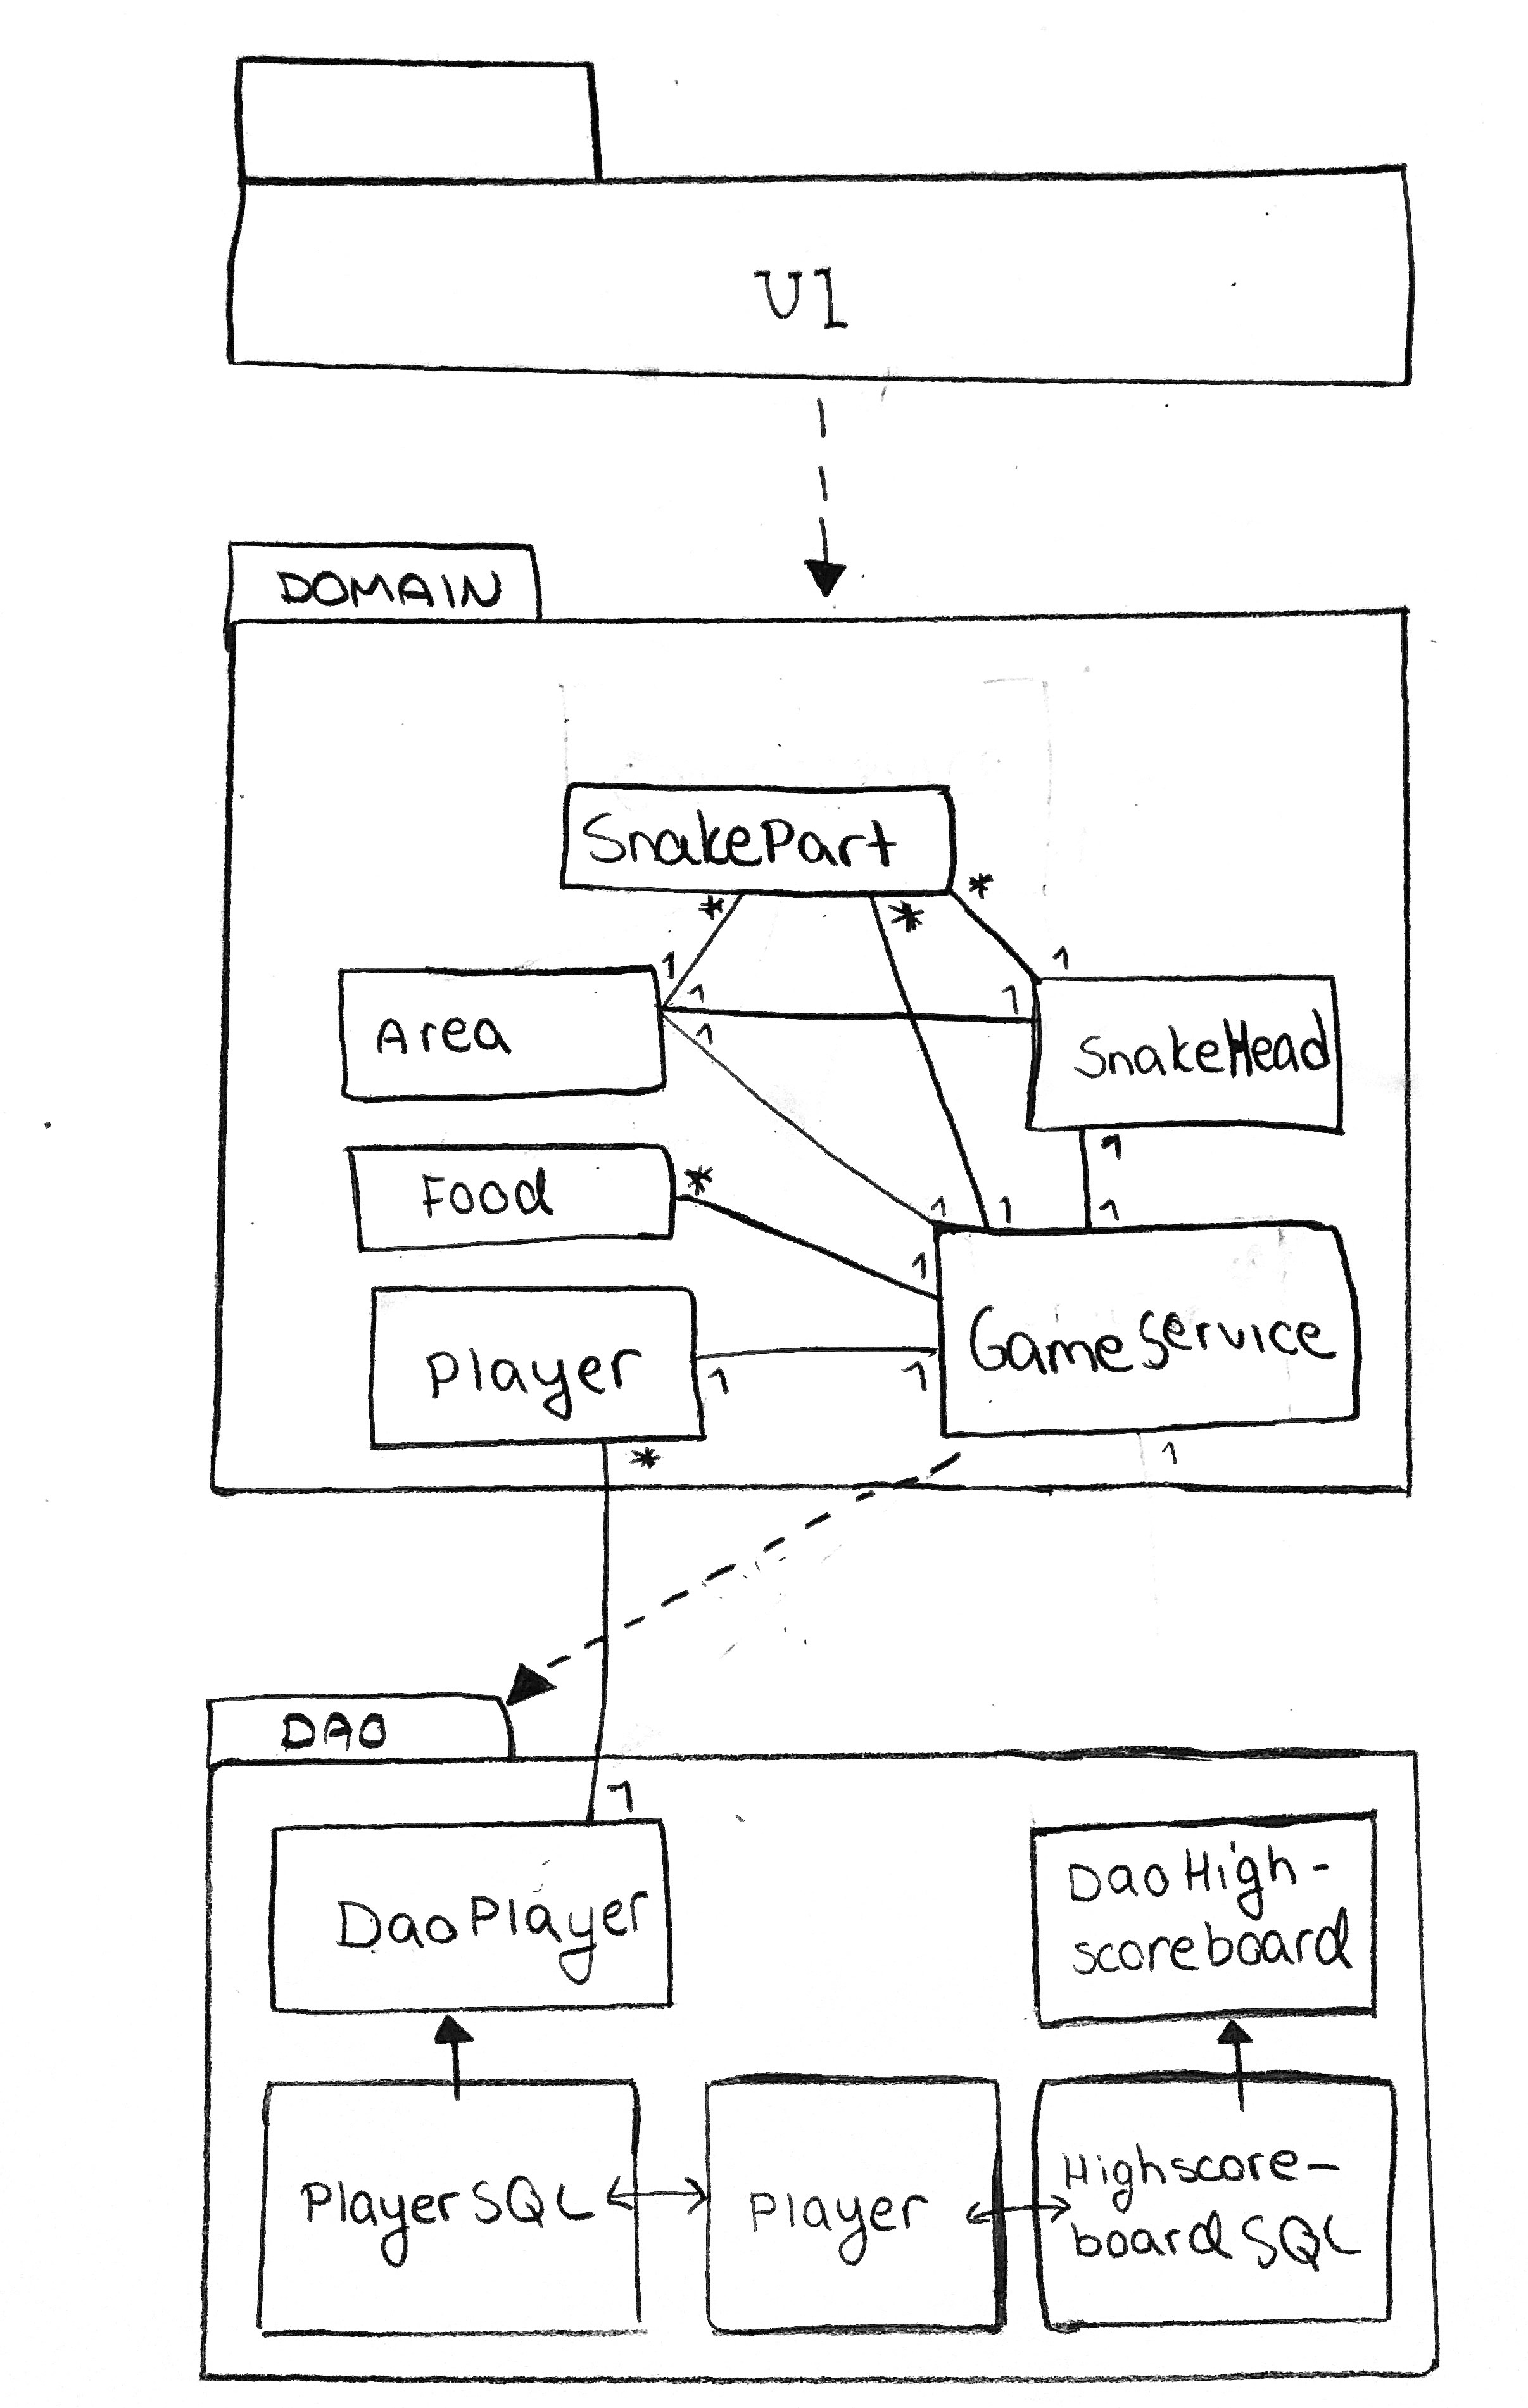 UI
DOMAIN
SnakePart
*
*
*
1
1
1
1
1
Area
SnakeHead
1
Food
*
1
1
1
1
GameService
Player
1
1
*
1
DAO
1
DaoPlayer
DaoHigh-
scoreboard
PlayerSQL
Player
Highscore-
boardSQL